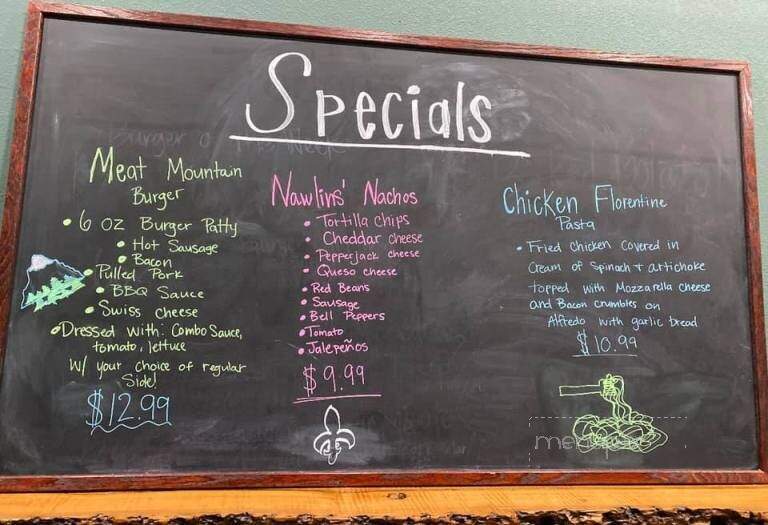 Specials
Meat Mountain
Burger
• 6 oz Burger Patty
• Hot Sausage
• Bacon
• Pulled Pork
• BBQ Sauce
• Swiss cheese
• Dressed with: Combo Sauce,
tomato, lettuce
W/ your choice of regular
Side!
$12.99
Nawlins' Nachos
• Tortilla chips
• Cheddar cheese
• Pepperjack cheese
• Queso cheese
• Red Beans
• Sausage
• Bell Peppers
• Tomato
• Jalepeños
$9.99
Chicken Florentine
Pasta
• Fried chicken covered in
Cream of Spinach + artichoke
topped with Mozzarella cheese
and Bacon crumbles on
Alfredo with garlic bread
$10.99